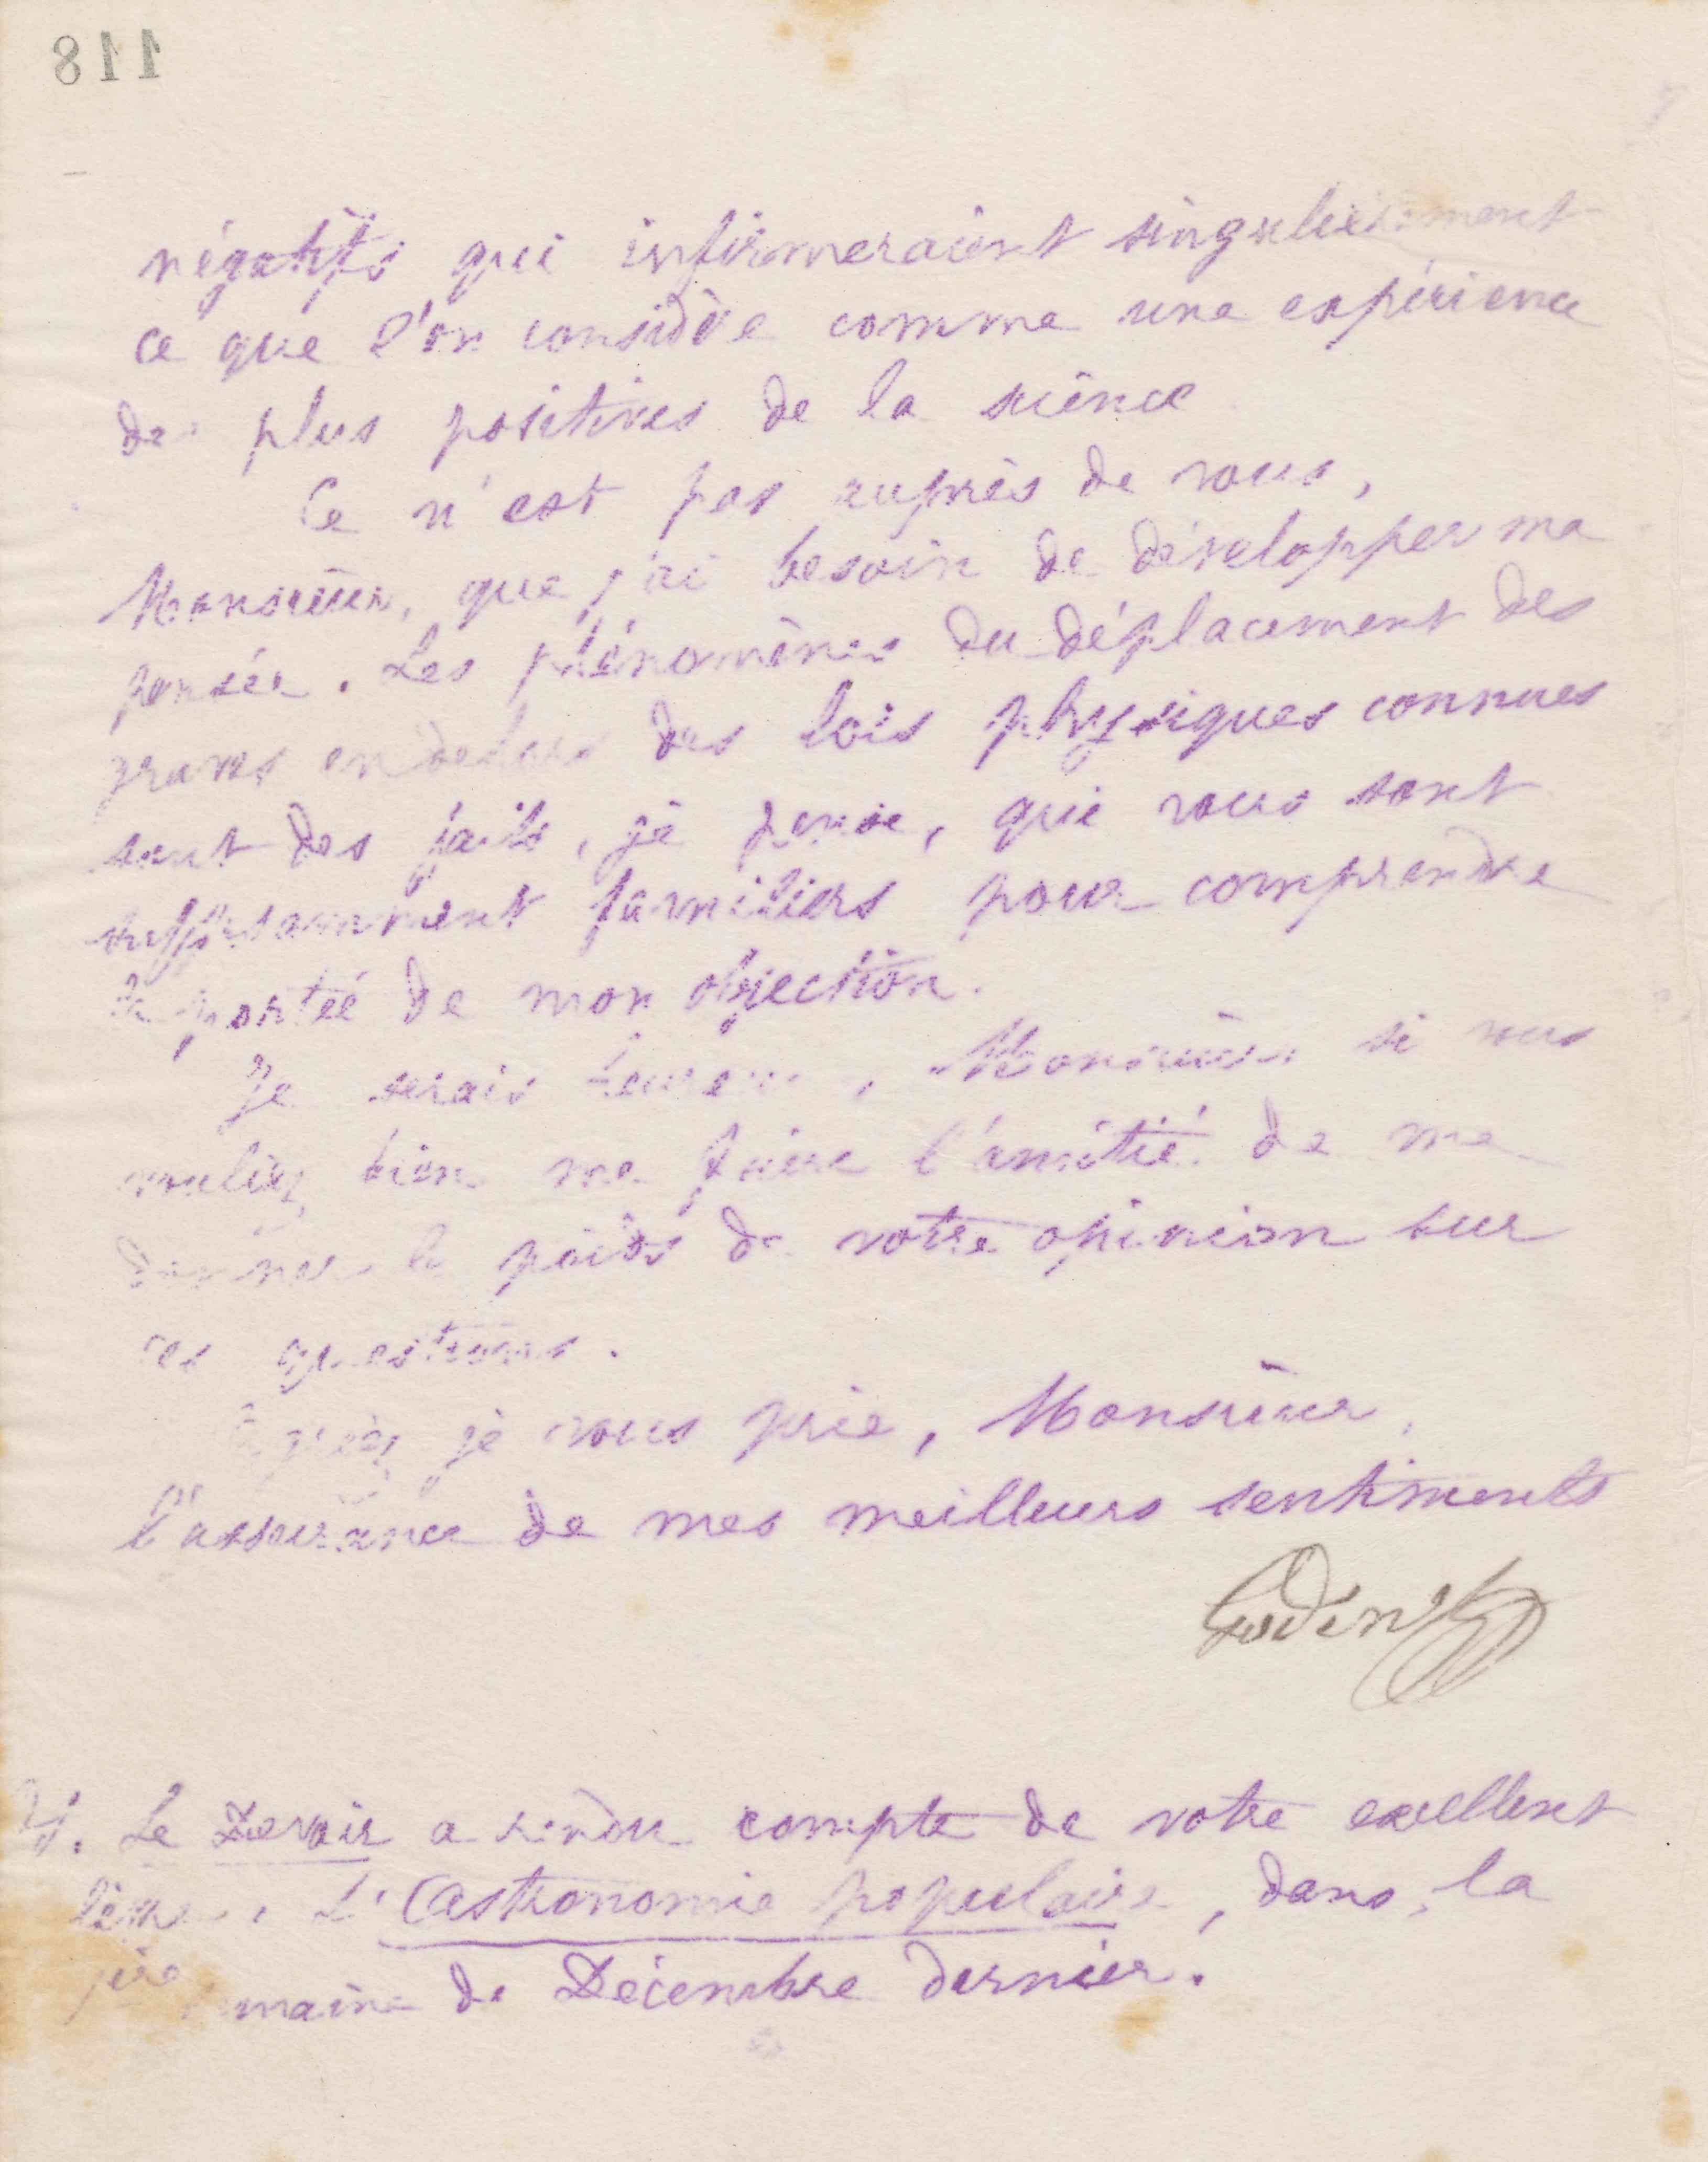 118
négatifs qui infirmeraient singulièrement
ce que l'on considère comme une expérience
des plus positives de la science
Ce n'est pas auprès de vous,
Monsieur, que j'ai besoin de développer ma
pensée. Les phénomènes du déplacement des
graves en dehors des lois physiques connues
sont des faits, je pense, qui vous sont
suffisamment familiers pour comprendre
la portée de mon objection.
Je serais heureux, Monsieur, si vous
vouliez bien me faire l'amitié de me
donner le poids de votre opinion sur
ces questions.
Agréez, je vous prie, Monsieur,
l'assurance de mes meilleurs sentiments
Godin
Le Devoir a rendu compte de votre excellent
L'Astronomie populaire, dans la
semaine de Décembre dernier.